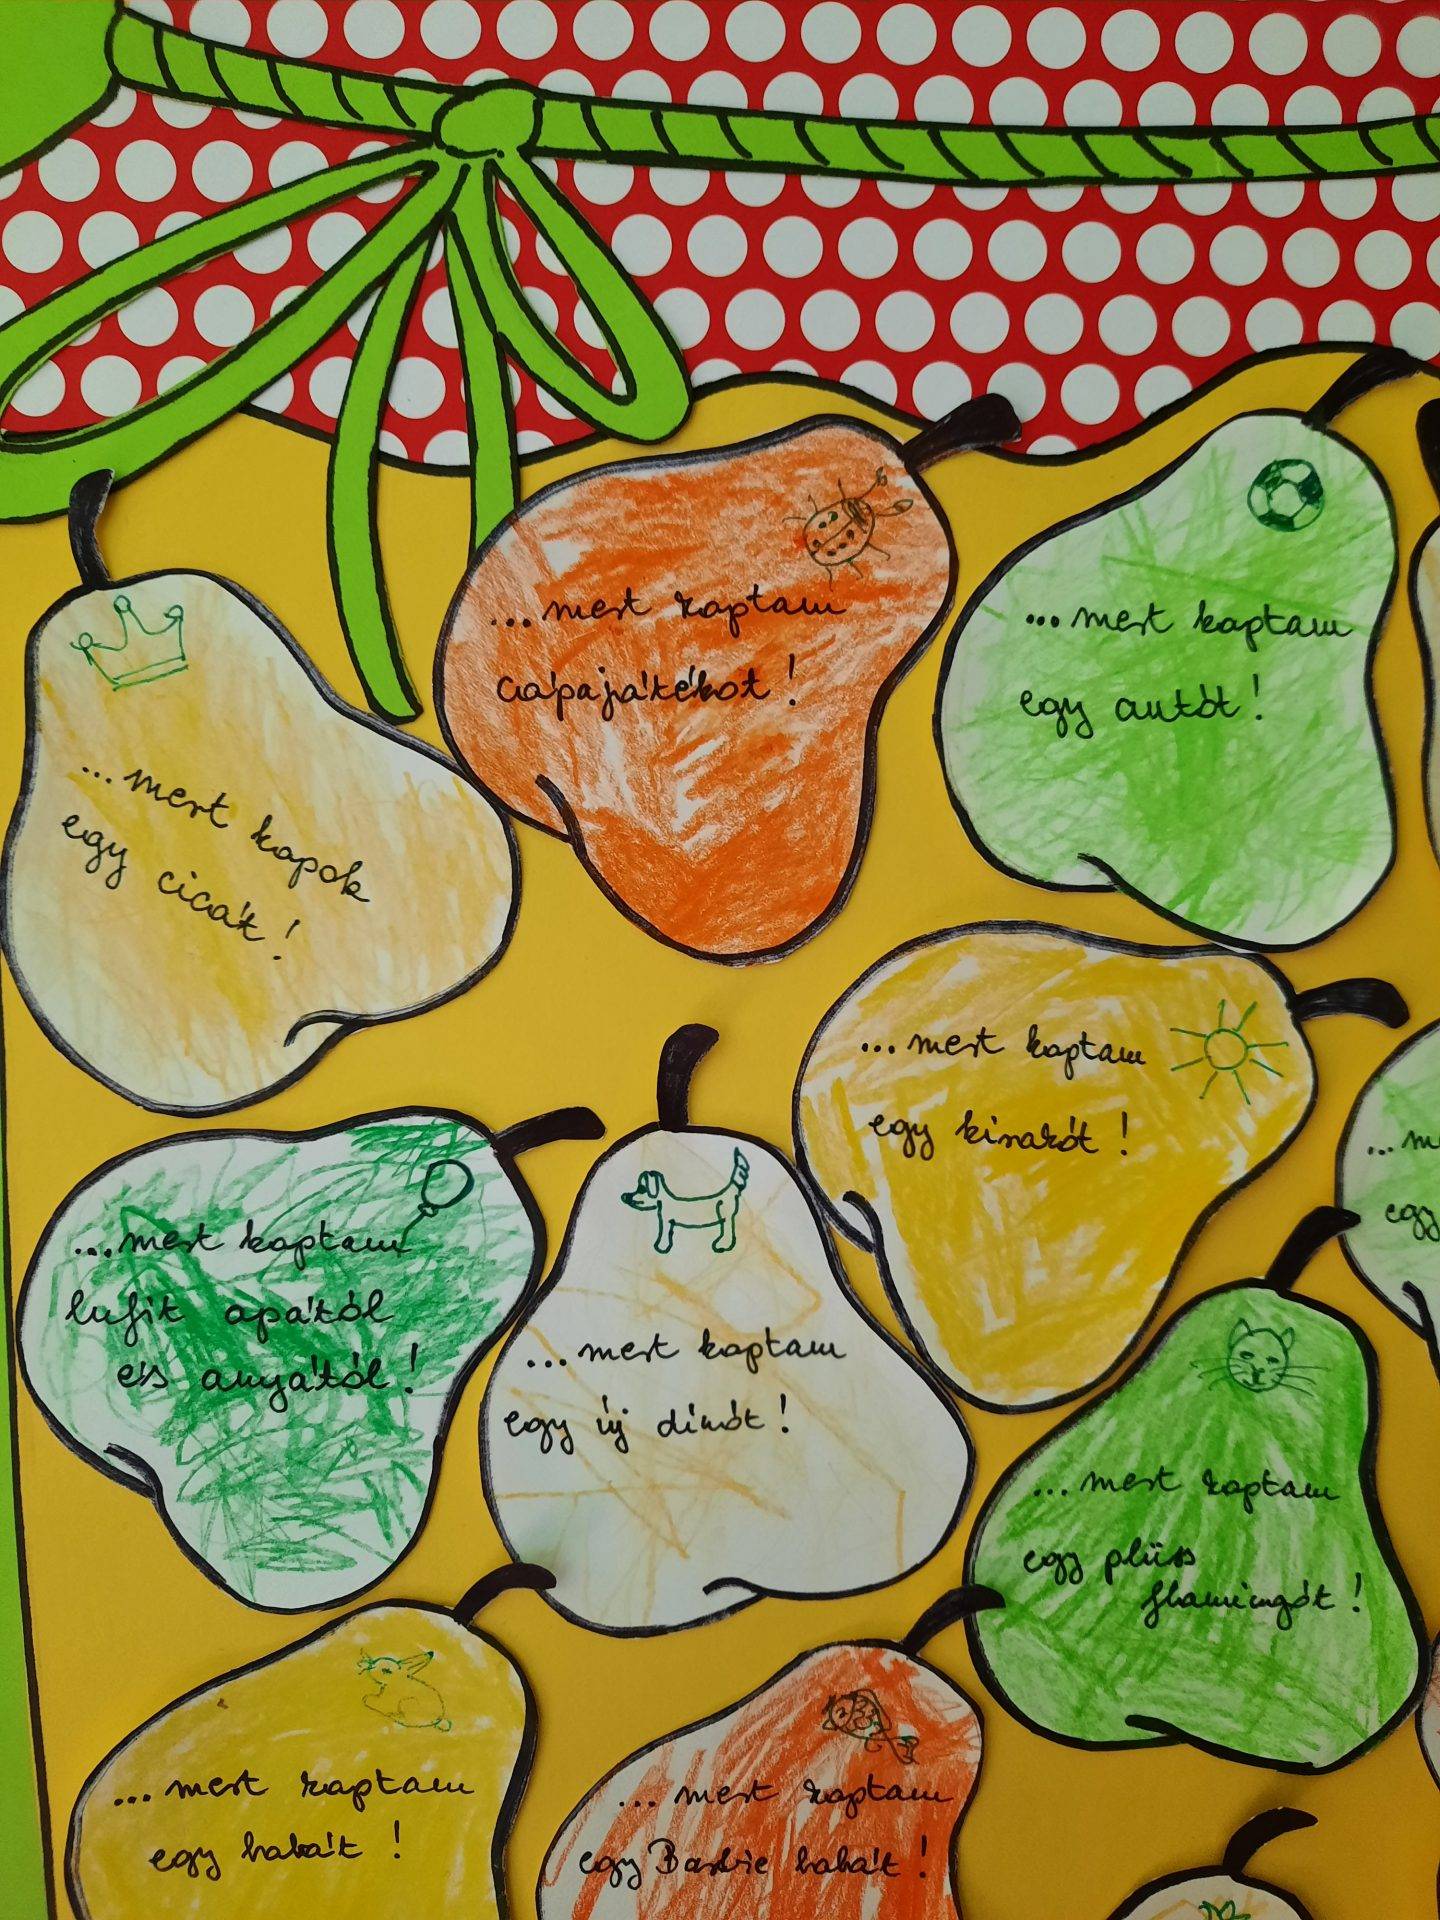 ...mert kaptam
cápajátékot!
...mert kaptam
egy autót!
...mert kapok
egy cicát!
...mert kaptam
egy kirakót!
...mert kaptam
lufit apától
és anyától!
...mert kaptam
egy új dinót!
egy
...mert kaptam
egy plüss
flamingót!
...mert kaptam
egy babát!
...mert kaptam
egy Barbie babát!